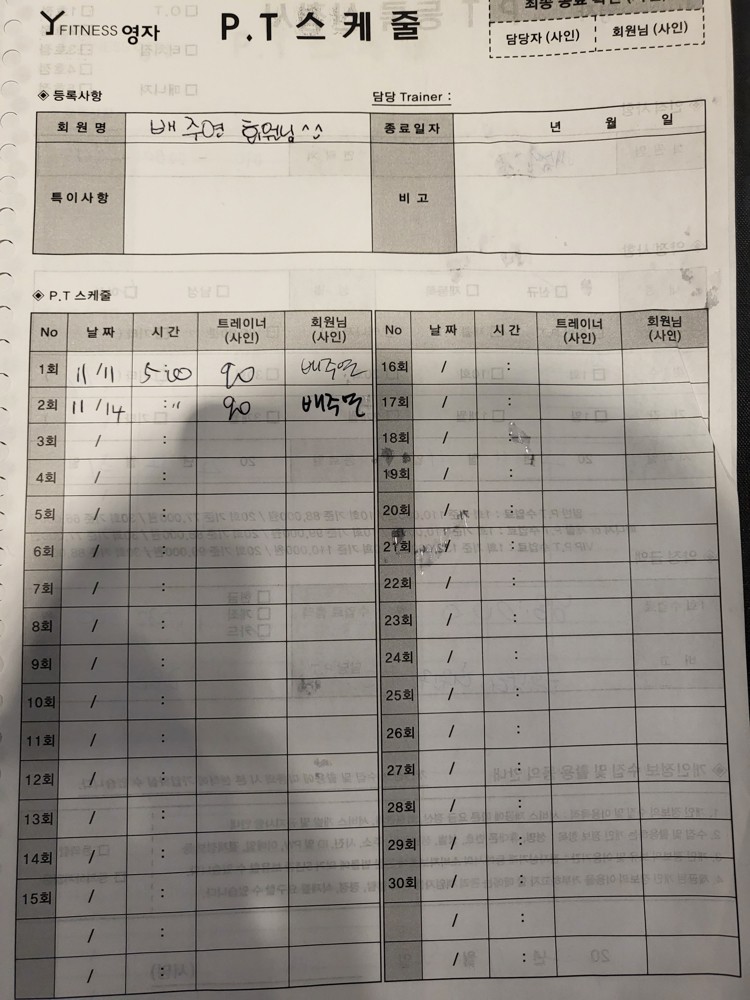 YFITNESS 영자
P.T 스케줄
담당자 (사인) 회원님 (사인)
◈ 등록사항
담당 Trainer :
회원명 배주연 회원님 ^^ 종료일자 년 월 일
특이사항 비고
◈ P.T 스케줄
No 날짜 시간 트레이너 (사인) 회원님 (사인) No 날짜 시간 트레이너 (사인) 회원님 (사인)
1회 11/11 5:00 배주연 16회 / :
2회 11/14 : " 배주연 17회 / :
3회 / : 18회 / :
4회 / : 19회 / :
5회 / : 20회 / :
6회 / : 21회 / :
7회 / : 22회 / :
8회 / : 23회 / :
9회 / : 24회 / :
10회 / : 25회 / :
11회 / : 26회 / :
12회 / : 27회 / :
13회 / : 28회 / :
14회 / : 29회 / :
15회 / : 30회 / :
/ : / :
/ : / :